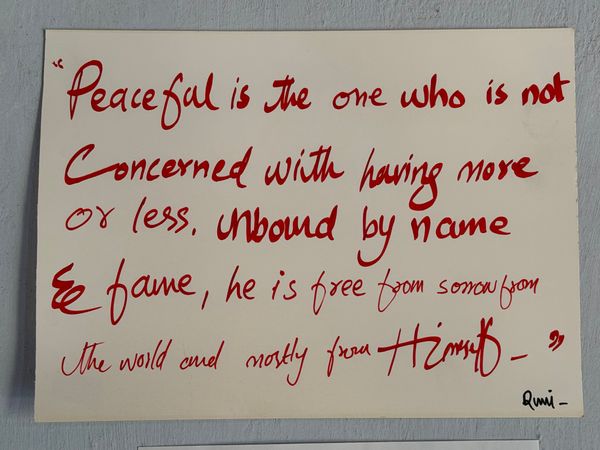 "Peaceful is the one who is not
Concerned with having more
or less. unbound by name
& fame, he is free from sorrow from
the world and mostly from Himself - "
Rumi -